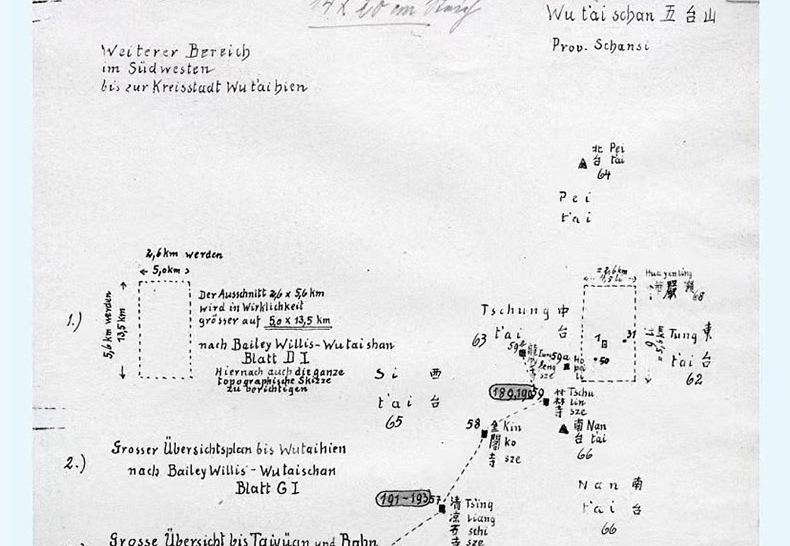 14 x 20 cm
Wu t'ai schan 五台山
Prov. Schansi
Weiterer Bereich
im Südwesten
bis zur Kreisstadt Wu t'ai hien
北 Pei
台 t'ai
64
Pei
t'ai
2,6 km werden
5,0 km
5,6 km werden
13,5 km
1.)
Der Ausschnitt 2,6 x 5,6 km
wird in Wirklichkeit
grösser auf 5,0 x 13,5 km
nach Bailey Willis - Wu tai shan
Blatt D I
Hiernach auch die ganze
topographische Skizze
zu berichtigen
= 2,6 km
Hua yen ling
68
= 5,6 km
Tschung 中
t'ai 台
63
Tung 東
t'ai 台
62
1
31
50
59a
Si 西
t'ai 台
65
189, 190
59
竹林寺
Tschu
lin
sze
南 Nan
台 t'ai
66
58
金閣寺
Kin
ko
sze
2.)
Grosser Übersichtsplan bis Wutaihien
nach Bailey Willis - Wutaischan
Blatt G I
Nan 南
t'ai 台
66
191 - 193
57
清凉
寺
Ts'ing
liang
schi
sze
Grosse Übersicht bis Taiyüan und Bahn